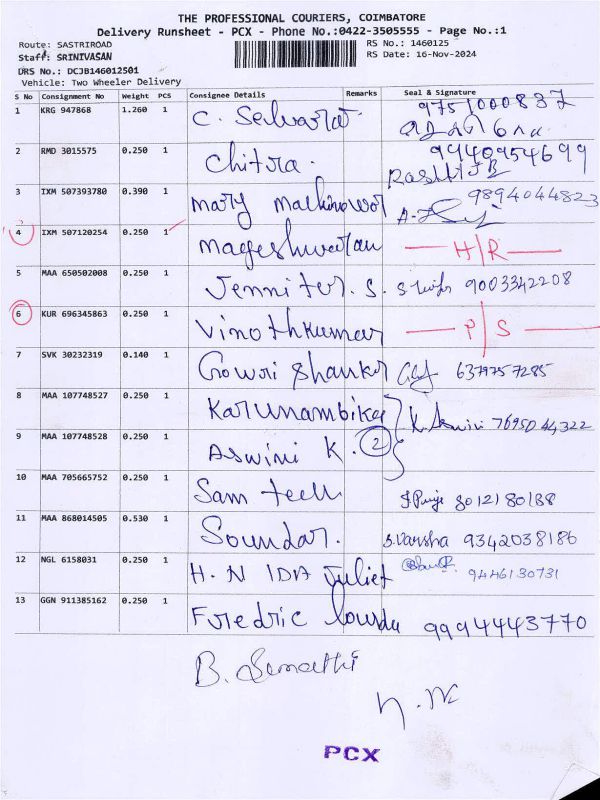 THE PROFESSIONAL COURIERS, COIMBATORE
Delivery Runsheet - PCX - Phone No.:0422-3505555 - Page No.:1
Route: SASTRIROAD
RS No.: 1460125
Staff: SRINIVASAN
RS Date: 16-Nov-2024
DRS No.: DCJB146012501
Vehicle: Two Wheeler Delivery
S No Consignment No Weight PCS Consignee Details Remarks Seal & Signature
1 KRG 947868 1.260 1 C. Selvaraj. 9751000837
2 RMD 3015575 0.250 1 Chitra. 9940954699
3 IXM 507393780 0.390 1 Mary 9894044823
4 IXM 507120254 0.250 1 Mageshwaran H/R
5 MAA 650502008 0.250 1 Jennifer. S. 9003342208
6 KUR 696345863 0.250 1 Vinothkumar P/S
7 SVK 30232319 0.140 1 Gowri Shankar 6379757285
8 MAA 107748527 0.250 1 Karunambika K. Aswini 7695044322
9 MAA 107748528 0.250 1 Aswini K. 2
10 MAA 705665752 0.250 1 Sam tech 8012180188
11 MAA 868014505 0.530 1 Soundar. S. Varsha 9342038186
12 NGL 6158031 0.250 1 H. N IDA Juliet 9446130731
13 GGN 911385162 0.250 1 Fredric 9994443770
B. Sumathi
PCX